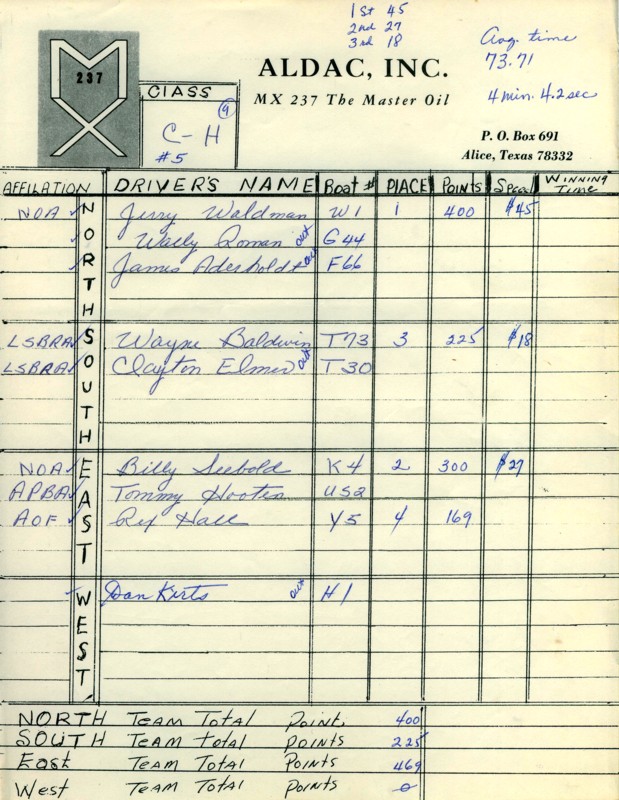 1st 45
2nd 27
3rd 18
Avg. time
73.71
4 min. 4.2 sec
237
ALDAC, INC.
MX 237 The Master Oil
P. O. Box 691
Alice, Texas 78332
CLASS
9
C-H
#5
AFFILATION DRIVER'S NAME Boat # PLACE POINTS Speed WINNING Time
NORTH
NOA ✓ Jerry Waldman W1 1 400 $45
✓ Wally Roman out G44
✓ James Aderholdt out F66
SOUTH
LSBRA ✓ Wayne Baldwin T73 3 225 $18
LSBRA ✓ Clayton Elmer out T30
EAST
NOA ✓ Billy Seebold K4 2 300 $27
APBA ✓ Tommy Hooten US2
AOF ✓ Rex Hall V5 4 169
WEST
Dan Kirts out H1
NORTH TEAM TOTAL POINT. 400
SOUTH TEAM TOTAL POINTS 225
East TEAM TOTAL POINTS 469
West TEAM TOTAL POINTS 0